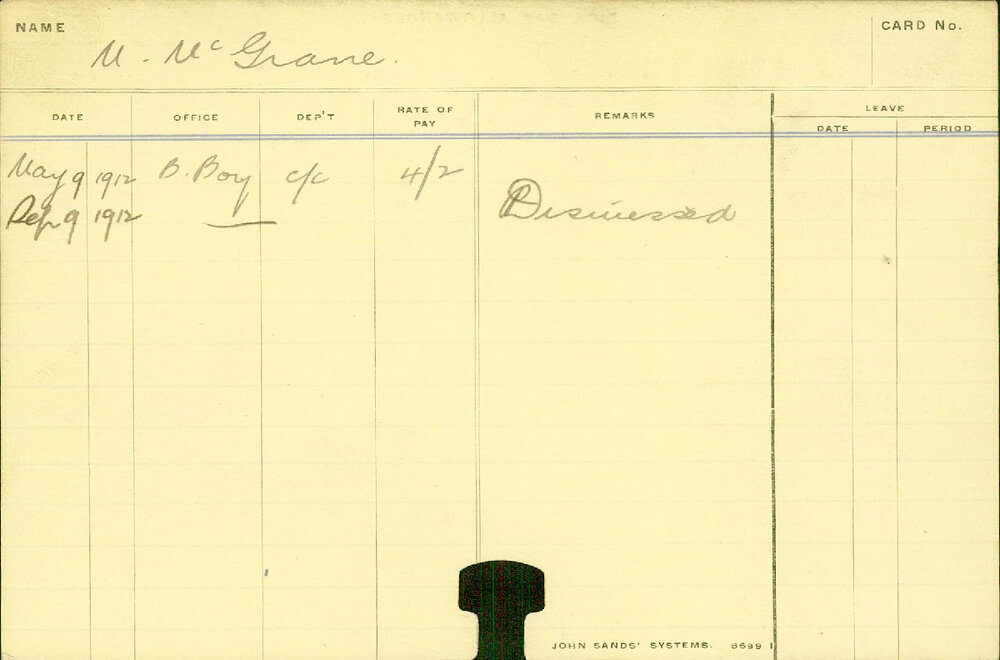 NAME
M. McGrane.
CARD No.
DATE OFFICE DEP'T RATE OF PAY REMARKS LEAVE
DATE PERIOD
May 9 1912 B. Boy c/c 4/2
Sep 9 1912 — Dismissed
JOHN SANDS' SYSTEMS. 8699